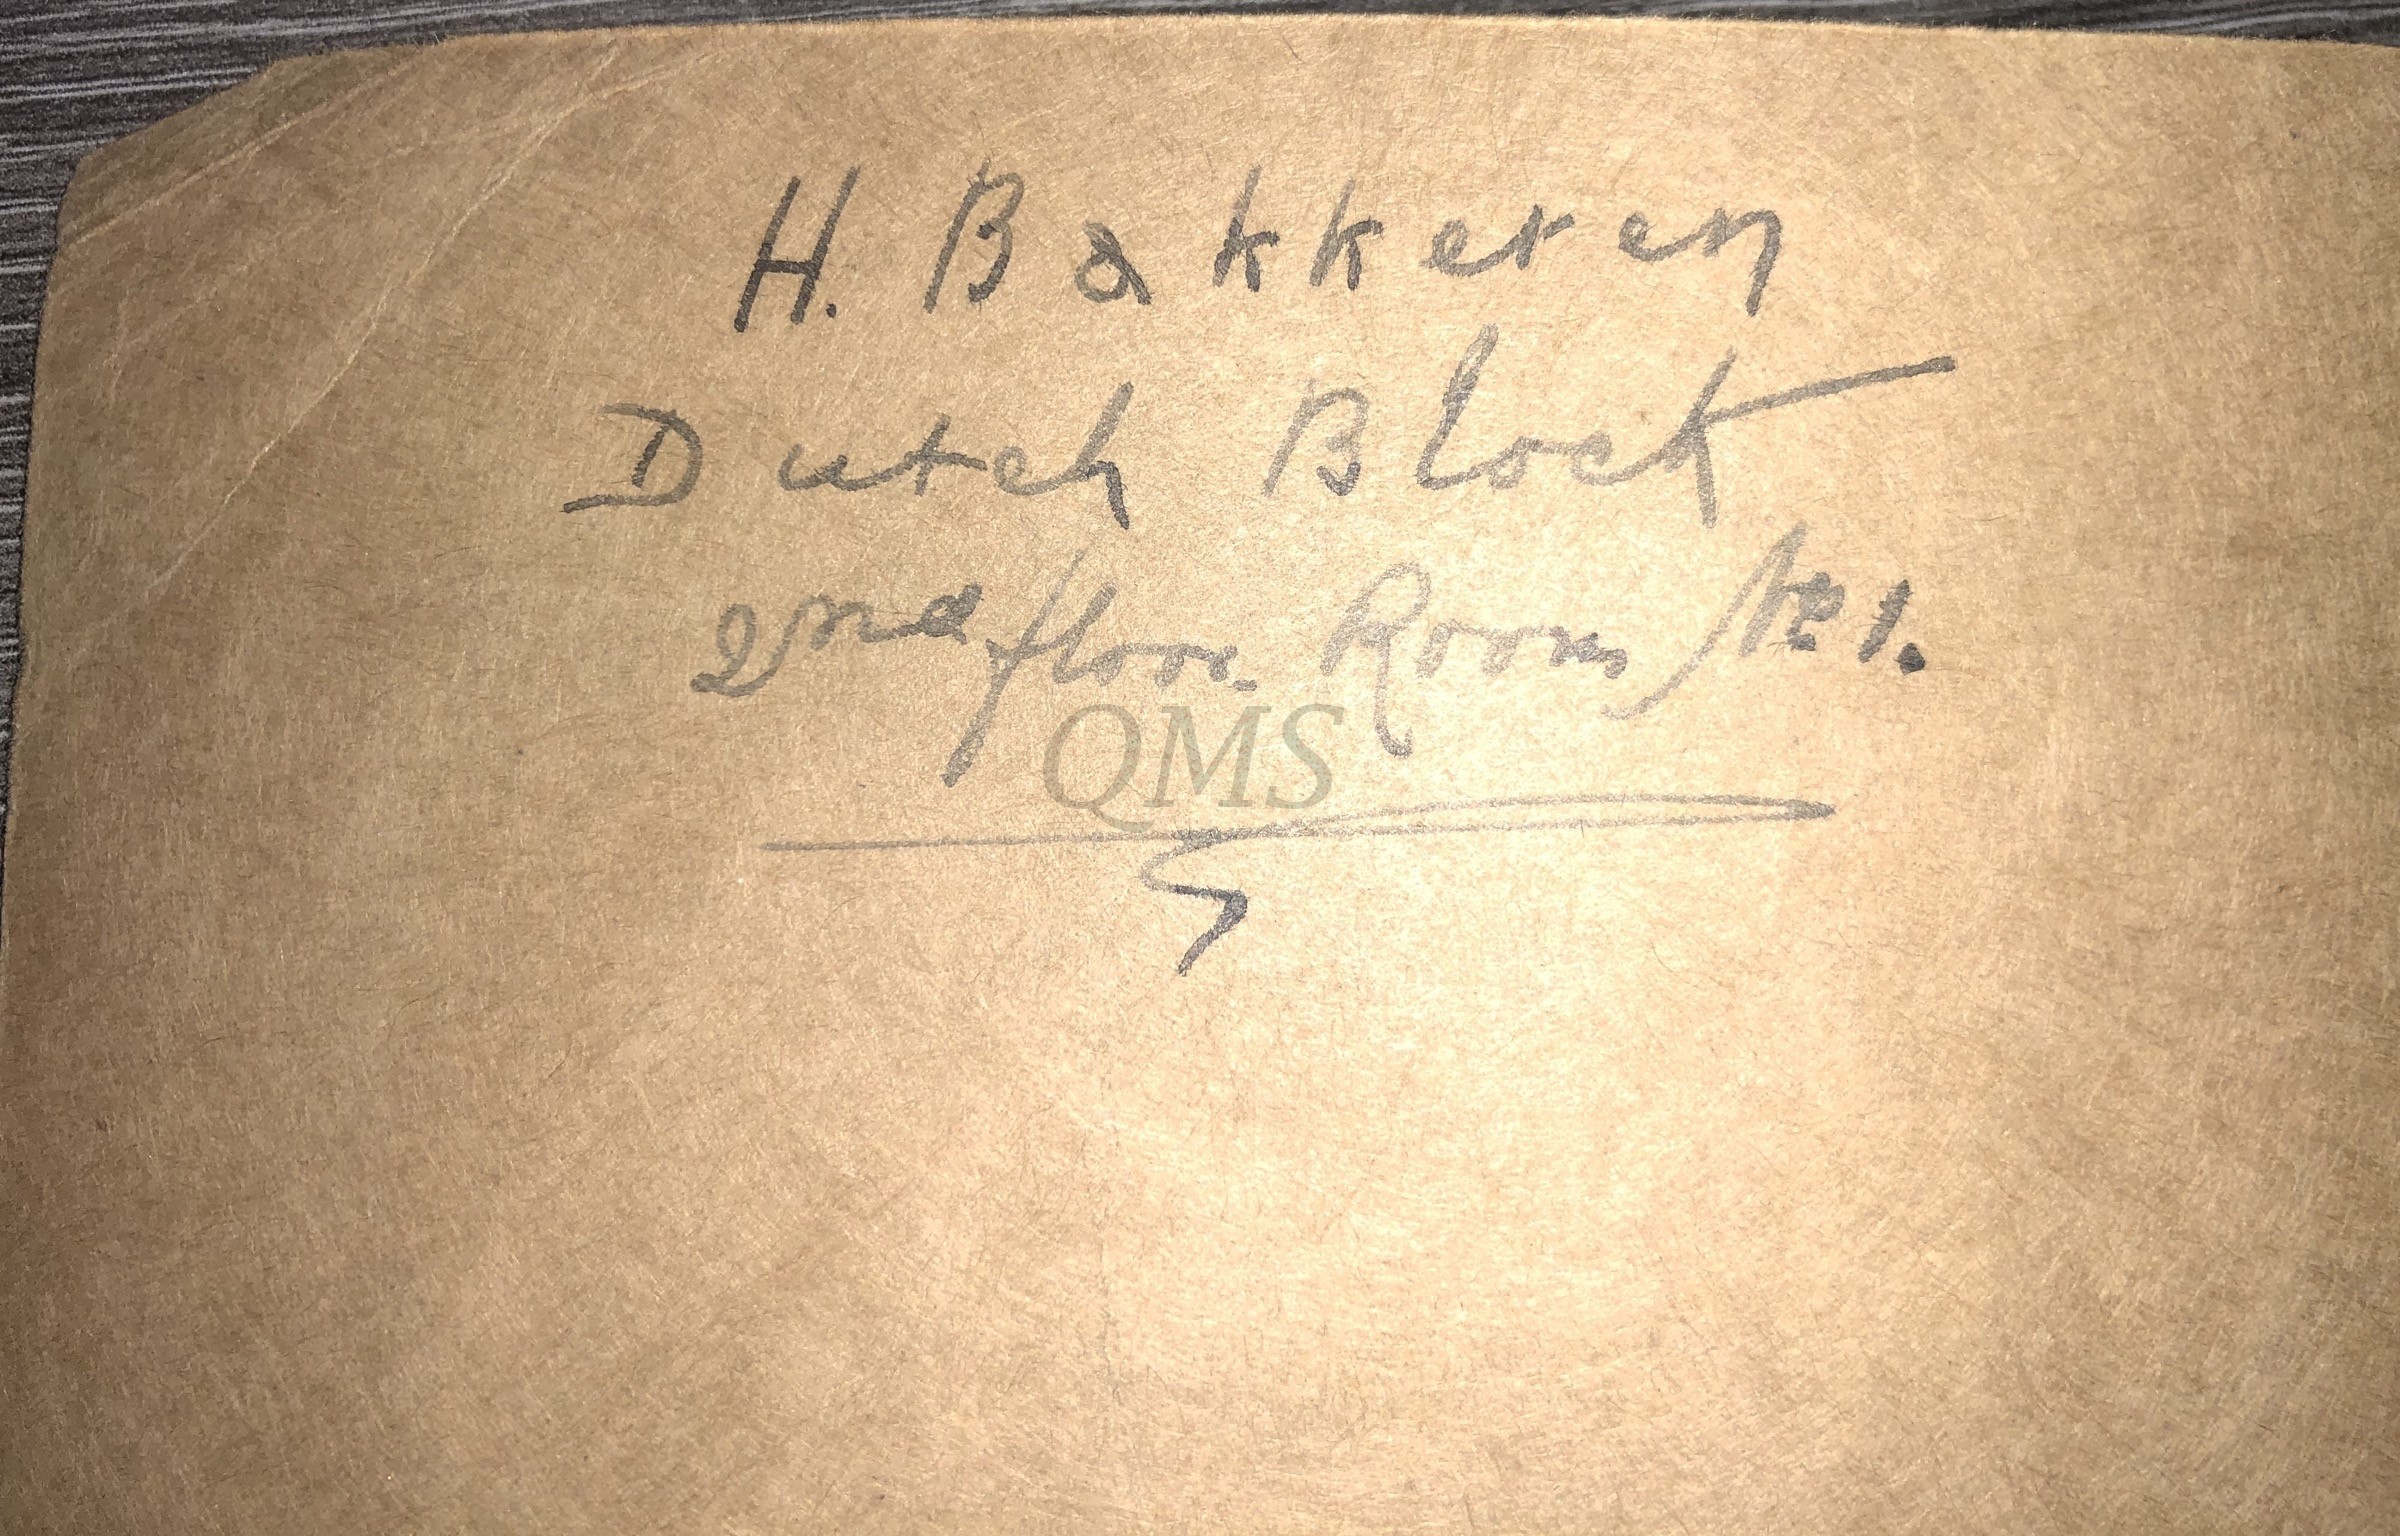 H. Bakkeren
Dutch Block
2nd floor Room No 1.
QMS